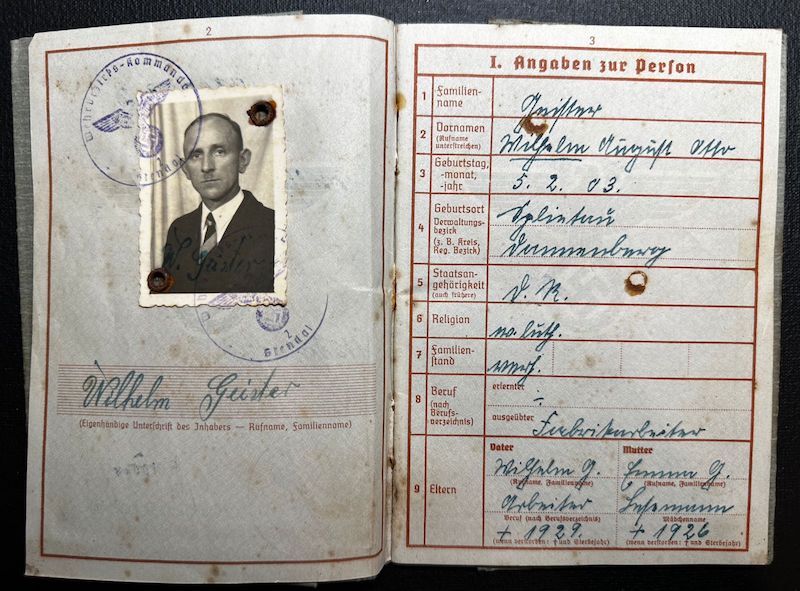 2
Wehrbezirks-Kommando
2
Stendal
W. Geister
2
Stendal
Wilhelm Geister
(Eigenhändige Unterschrift des Inhabers — Rufname, Familienname)
3
I. Angaben zur Person
1 Familien-
name
Geister
2 Vornamen
(Rufname
unterstreichen)
Wilhelm August Otto
3 Geburtstag,
-monat,
-jahr
5. 2. 03.
4 Geburtsort
Verwaltungs-
bezirk
(z. B. Kreis,
Reg. Bezirk)
Splietau
Dannenberg
5 Staatsan-
gehörigkeit
(auch frühere)
D. R.
6 Religion
ev. luth.
7 Familien-
stand
verh.
8 Beruf
(nach
Berufs-
verzeichnis)
erlernter
ausgeübter
Fabrikarbeiter
9 Eltern
Vater Mutter
Wilhelm G. Emma G.
(Rufname, Familienname) (Rufname, Familienname)
Arbeiter Lesemann
Beruf (nach Berufsverzeichnis) Mädchenname
+ 1929. + 1926
(wenn verstorben: † und Sterbejahr) (wenn verstorben: † und Sterbejahr)